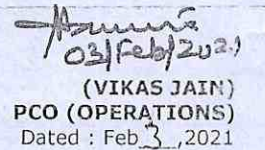 03/Feb/2021
(VIKAS JAIN)
PCO (OPERATIONS)
Dated : Feb 3 ,2021